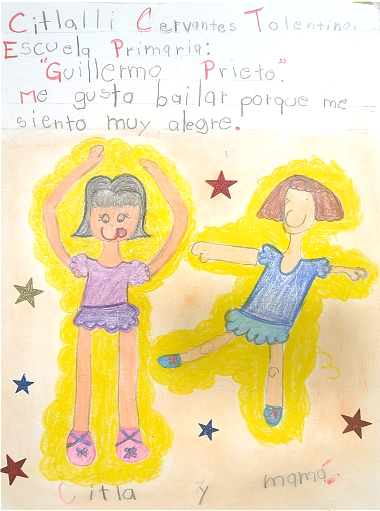 Citlalli Cervantes Tolentino.
Escuela Primaria:
"Guillermo Prieto".
Me gusta bailar porque me
siento muy alegre.
Citla y mamá.